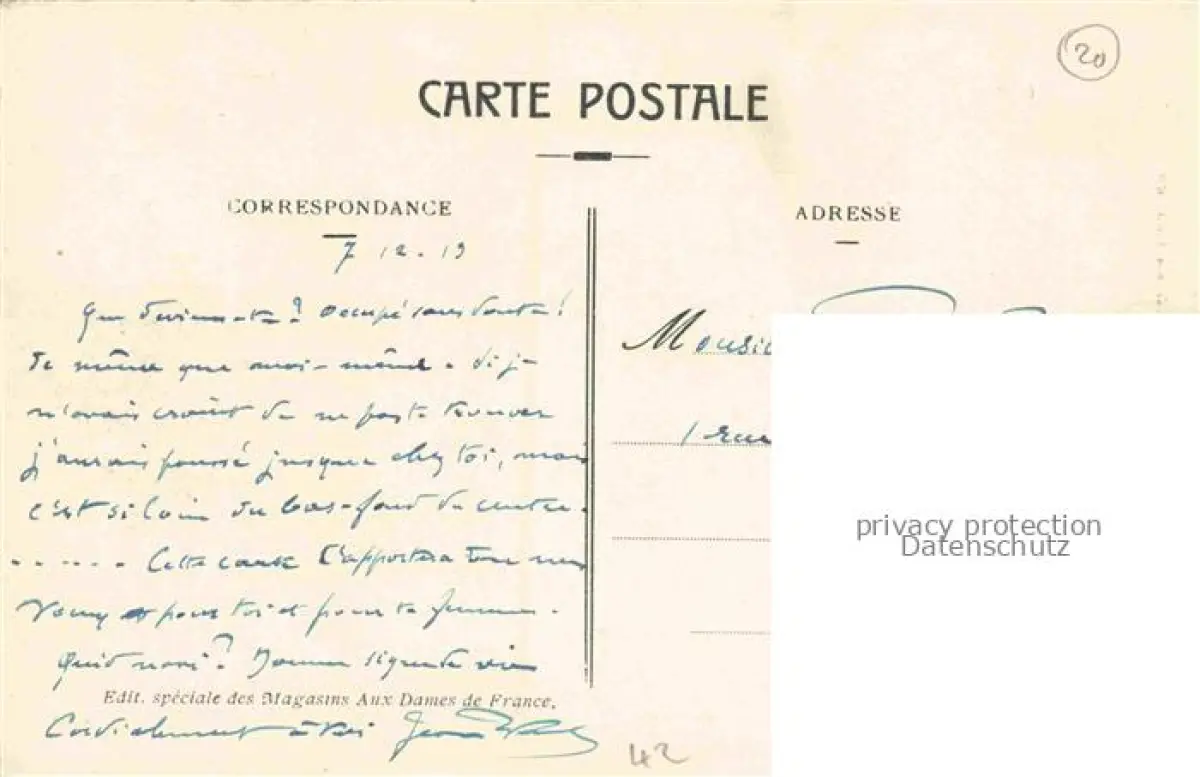 20
CARTE POSTALE
CORRESPONDANCE
ADRESSE
7 12.19
Que deviens-tu? Occupé sans doute!
De même que moi-même. Si je
n'avais craint de ne pas te trouver
j'aurais poussé jusque chez toi, mais
c'est si loin du bas-fond du centre.
...... Cette carte t'apportera tous mes
voeux pour toi et pour ta femme.
Quid novi? Donne signe de vie
Edit. spéciale des Magasins Aux Dames de France.
Cordialement à toi Jean
1 rue
privacy protection
Datenschutz
42